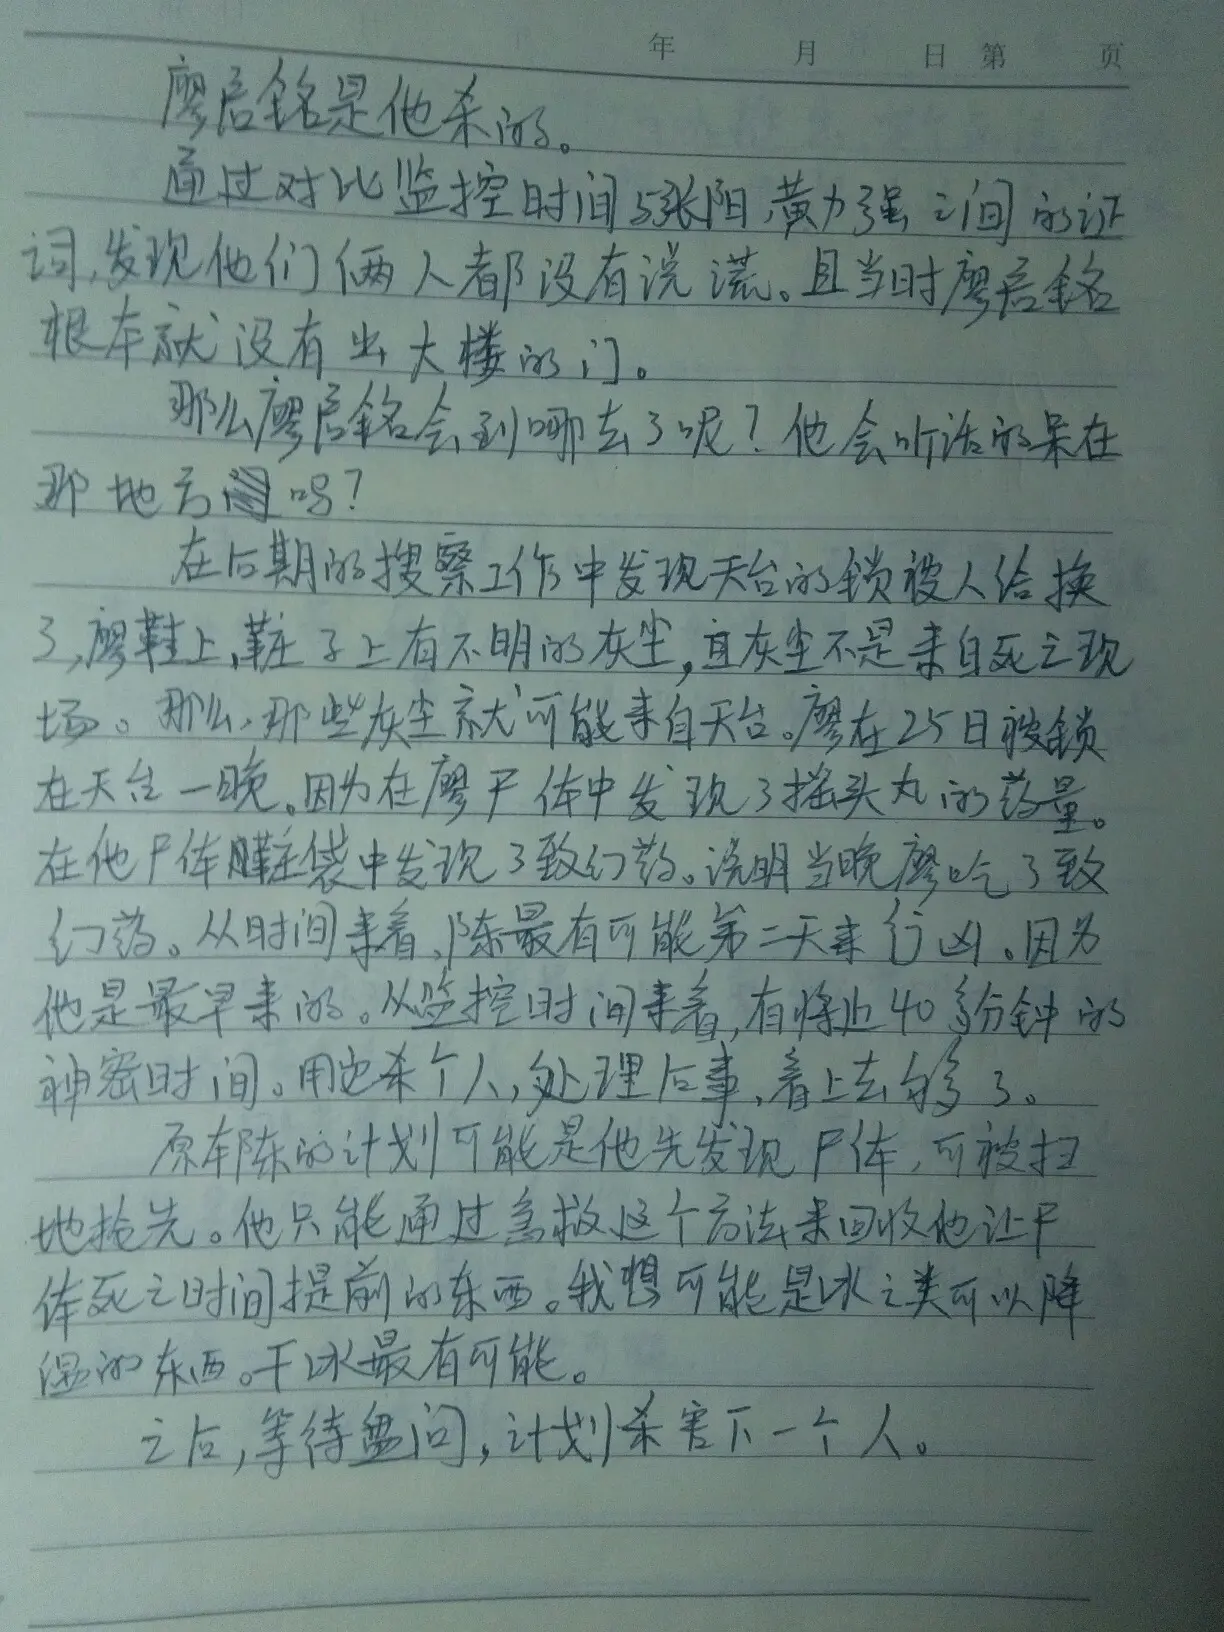 年 月 日 第 页
廖启铭是他杀的。
通过对比监控时间与张阳,黄力强之间的证
词,发现他们俩人都没有说谎。且当时廖启铭
根本就没有出大楼的门。
那么廖启铭会到哪去了呢?他会听话的呆在
那地方吗?
在后期的搜察工作中发现天台的锁被人给换
了,廖鞋上,鞋子上有不明的灰尘,且灰尘不是来自死亡现
场。那么,那些灰尘就可能来自天台。廖在25日被锁
在天台一晚。因为在廖尸体中发现了摇头丸的药量。
在他尸体脏袋中发现了致幻药。说明当晚廖吃了致
幻药。从时间来看,陈最有可能第二天来行凶。因为
他是最早来的。从监控时间来看,有将近40多分钟的
神密时间。用它杀个人,处理后事,看上去够了。
原本陈的计划可能是他先发现尸体,可被扫
地抢先。他只能通过急救这个方法来回收他让尸
体死亡时间提前的东西。我想可能是冰之类可以降
温的东西。干冰最有可能。
之后,等待盘问,计划杀害下一个人。